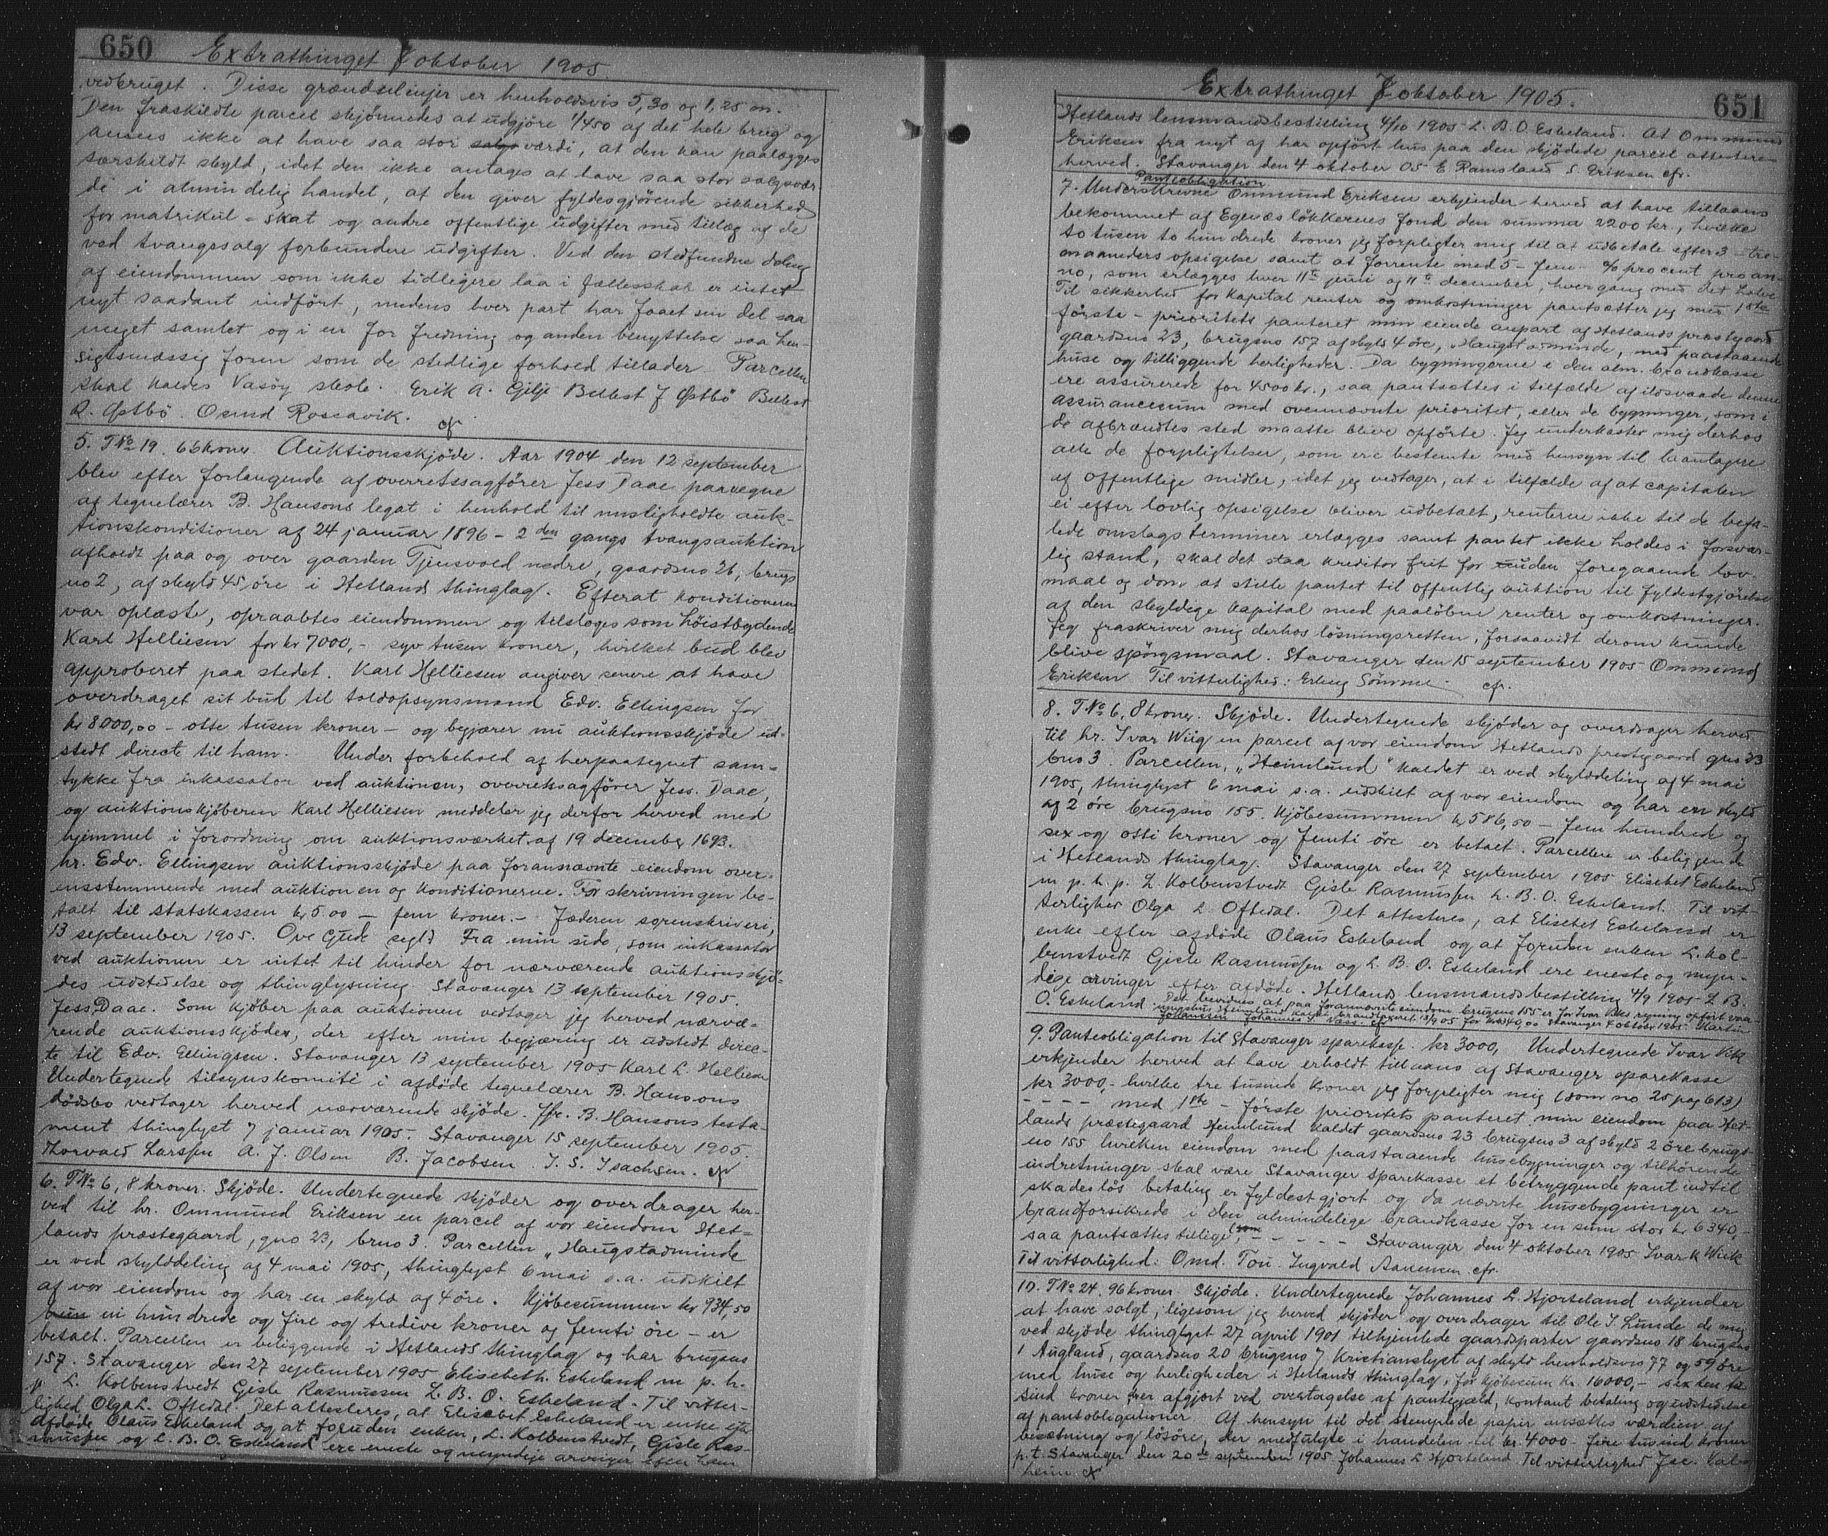 650 Extrathinget 7 oktober 1905.
vedbruget. Disse grændselinjer er henholdsvis 5,30 og 1,25 m.
Den fraskildte parcel skjønnedes at udgjøre 1/450 af det hele brug og
ansees ikke at have saa stor salgsværdi, at den kan paalægges
særskildt skyld, idet den ikke antages at have saa stor salgsvær
di i almindelig handel, at den giver fyldesgjørende sikkerhed
for matrikul-skat og andre offentlige udgifter med tillæg af de
ved tvangssalg forbundne udgifter. Ved den stedfundne deling
af eiendommen som ikke tidligere laa i fællesskab er intet
nyt saadant indført, medens hver part har faaet sin del saa
meget samlet og i en for fredning og anden benyttelse saa hen-
sigtsmæssig form som de stedlige forhold tillader. Parcellen
skal kaldes Vasøy skole. Erik A. Gilje Bellest J Østbø Bellest
R. Østbø. Osmd Rossavik. cfr
5. T No 19. 66 kroner. Auktionsskjøde. Aar 1904 den 12 september
blev efter forlangende af overretssagfører Jess Daae paa vegne
af tegnelærer B. Hansons legat i henhold til misligholdte auk-
tionskonditioner af 24 januar 1896 - 2den gangs tvangsauktion
afholdt paa og over gaarden Tjensvold nedre, gaardsno 26, brugs
no 2, af skyld 45 øre i Hetlands thinglag. Efterat konditionerne
var oplæste, opraabtes eiendommen og tilsloges som høistbydende
Karl Helliesen for kr 7000,- syv tusen kroner, hvilket bud blev
approberet paa stedet. Karl Helliesen angiver senere at have
overdraget sit bud til toldopsynsmand Edv. Ellingsen for
kr 8000,00 - otte tusen kroner - og begjærer nu auktionsskjøde ud-
stedt directe til ham. Under forbehold af herpaategnet sam-
tykke fra inkassator ved auktionen, overretssagfører Jess. Daae,
og auktionskjøberen Karl Helliesen meddeler jeg derfor herved med
hjemmel i forordning om auktionsværket af 19 december 1693.
hr. Edv. Ellingsen auktionsskjøde paa forannævnte eiendom over-
ensstemmende med auktionen og konditionerne. For skrivningen be-
talt til statskassen kr 5.00 - fem kroner.- Jæderen sorenskriveri,
13 september 1905. Ove Gude segl Fra min side, som inkassator
ved auktionen er intet til hinder for nærværende auktionsskjø-
des udstedelse og thinglysning Stavanger 13 september 1905.
Jess Daae. Som kjøber paa auktionen vedtager jeg herved nærvæ-
rende auktionsskjøde, der efter min begjæring er udstedt direc-
te til Edv. Ellingsen. Stavanger 13 september 1905 Karl L. Helliesen
Undertegnede tilsynskomité i afdøde tegnelærer B. Hansons
dødsbo vedtager herved nærværende skjøde. Jfr. B. Hansons testa-
ment thinglyst 7 januar 1905. Stavanger 15 september 1905.
Thorvald Larssen A. J. Olsen B. Jacobsen J. S. Isachsen. cfr
6. T No 6, 8 kroner. Skjøde. Undertegnede skjøder og overdrager her-
ved til hr. Ommund Eriksen en parcel af vor eiendom Het-
lands præstegaard, gno 23, brno 3. Parcellen "Haugstadminde
er ved skylddeling af 4 mai 1905, thinglyst 6 mai s.a. udskilt
af vor eiendom og har en skyld af 4 øre. Kjøbesummen kr 934,50
ni hundrede og fire og tredive kroner og femti øre - er
betalt. Parcellen er beliggende i Hetlands thinglag og har brugsno
157. Stavanger den 27 september 1905 Elisebeth Eskeland m p. h.
p. L. Kolbenstvedt Gisle Rasmussen L. B. O. Eskeland. Til vitter-
lighed Olga L. Oftedal. Det attesteres, at Elisabet Eskeland er enke efter
afdøde Olaus Eskeland og at foruden enken, L. Kolbenstvedt, Gisle Ras-
mussen og L. B. O. Eskeland ere eneste og myndige arvinger efter ham
Extrathinget 7 oktober 1905. 651
Hetlands lensmandsbestilling 4/10 1905 L. B. O. Eskeland. At Ommund
Eriksen fra nyt af har opført hus paa den skjødede parcel attesteres
herved. Stavanger den 4 oktober 05 E Ramsland S. Eriksen cfr.
Panteobligation
7. Underskrevne Ommund Eriksen erkjender herved at have tillaans
bekommet af Egenæsløkkernes fond den summa 2200 kr., hvilke
totusen to hundrede kroner jeg forpligter mig til at udbetale efter 3 - tre
maaneders opsigelse samt at forrente med 5 - fem - % procent pro an-
no, som erlægges hver 11te juni og 11te december, hver gang med det halve
Til sikkerhed for kapital renter og omkostninger pantsætter jeg med 1ste
første - prioritets panteret min eiende anpart af Hetlands præstegaard
gaardsno 23, brugsno 157 af skyld 4 øre, "Haugstadminde, med paastaaende
huse og tilliggende herligheder. Da bygningerne i den alm. brandkasse
ere assurerede for 4500 kr., saa pantsættes i tilfælde af ildsvaade denne
assurancesum med ovennævnte prioritet, eller de bygninger, som i
de afbrændtes sted maatte blive opførte. Jeg underkaster mig derhos
alle de forpligtelser, som ere bestemte med hensyn til laantagere
af offentlige midler, idet jeg vedtager, at i tilfælde af at capitalen
ei efter lovlig opsigelse bliver udbetalt, renterne ikke til de befa-
lede omslagsterminer erlægges samt pantet ikke holdes i forsvar-
lig stand, skal det staa kreditor frit for uden foregaaende lov-
maal og dom at stille pantet til offentlig auktion til fyldestgjørelse
af den skyldige kapital med paaløbne renter og omkostninger.
Jeg fraskriver mig derhos løsningsretten, forsaavidt derom kunde
blive spørgsmaal. Stavanger den 15 september 1905 Ommund
Eriksen Til vitterlighed: Erling Sømme. cfr.
8. T No 6, 8 kroner. Skjøde. Undertegnede skjøder og overdrager herved
til hr. Ivar Wiig en parcel af vor eiendom Hetlands prestegaard gno 23
bno 3. Parcellen, "Heimlund" kaldet er ved skylddeling af 4 mai
1905, thinglyst 6 mai s.a. udskilt af vor eiendom og har en skyld
af 2 øre brugsno 155. Kjøbesummen kr 586,50 - fem hundrede og
sex og otti kroner og femti øre er betalt. Parcellen er beliggende
i Hetlands thinglag. Stavanger den 27 september 1905 Elisebet Eskeland
m p. h. p. L Kolbenstvedt Gisle Rasmussen L. B. O. Eskeland. Til vit-
terlighed Olga L. Oftedal. Det attesteres, at Elisebet Eskeland er
enke efter afdøde Olaus Eskeland og at foruden enken L. Kol-
benstvedt Gisle Rasmussen og L. B. O. Eskeland ere eneste og myn-
dige arvinger efter afdøde. Hetlands lensmandsbestilling 4/9 1905 L. B.
O. Eskeland Det bevidnes at paa forannævnte eiendom brugsno 155 er for Ivar regning opført vaa
ningshus Heimlund kaldt brandtaxeret 13/9 05 for kr 6340,00 Stavanger 4 oktober 1905 Martin
Johannes S. Vass. cfr
9. Panteobligation til Stavanger sparekasse. kr 3000, Undertegnede Ivar Viik
erkjender herved at have erholdt tillaans af Stavanger sparekasse
kr 3000,- hvilke tre tusinde kroner jeg forpligter mig (som no 25 pag 613)
- - - - med 1ste - første prioritets panteret min eiendom paa Het-
lands præstegaard Heimlund kaldet gaardsno 23 brugsno 3 af skyld 2 øre brugs-
no 155 hvilken eiendom med paastaaende husebygninger og tilhørende
indretninger skal være Stavanger sparekasse et betryggende pant indtil
skadesløs betaling er fyldestgjort og da nævnte husebygninger er
brandforsikrede i den almindelige brandkasse for en sum stor kr 6340,-
saa pantsættes tillige (som - - - - - Stavanger den 4 oktober 1905 Ivar K Wiik
Til vitterlighed: Omd. Tou. Ingvald Aanensen cfr.
10. T No 24. 96 kroner. Skjøde. Undertegnede Johannes L. Hjorteland erkjender
at have solgt, ligesom jeg herved skjøder og overdrager til Ole T. Lunde de mig
ved skjøde thinglyst 27 april 1901 tilhjemlede gaardsparter gaardsno 18 brugsno
1 Augland, gaardsno 20 brugsno 7 Kristianslyst af skyld henholdsvis 77 og 59 øre
med huse og herligheder i Hetlands thinglag, for kjøbesum kr. 16000,- sexten tu
sind kroner, her afgjort ved overtagelse af pantegjæld, kontant betaling og udstedelse
af pantobligationer. Af hensyn til det stemplede papir ansættes værdien af
besætning og løsøre, der medfulgte i handelen til kr. 4000 - fire tusind kroner
p.t. Stavanger den 20de september 1905 Johannes L Hjorteland Til vitterlighed Jac.
heim cfr